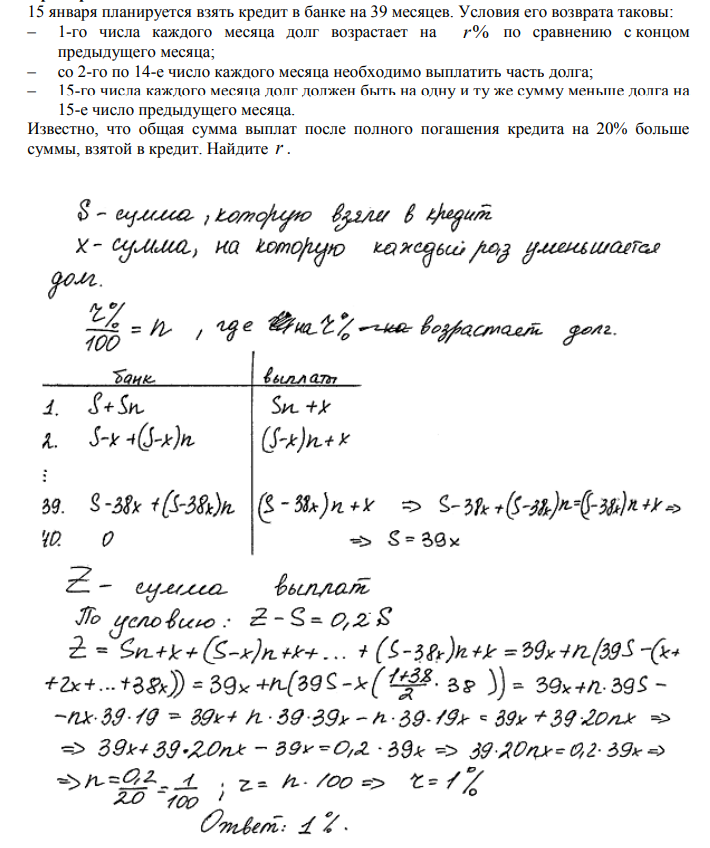 15 января планируется взять кредит в банке на 39 месяцев. Условия его возврата таковы:
– 1-го числа каждого месяца долг возрастает на r% по сравнению с концом
предыдущего месяца;
– со 2-го по 14-е число каждого месяца необходимо выплатить часть долга;
– 15-го числа каждого месяца долг должен быть на одну и ту же сумму меньше долга на
15-е число предыдущего месяца.
Известно, что общая сумма выплат после полного погашения кредита на 20% больше
суммы, взятой в кредит. Найдите r .
S - сумма, которую взяли в кредит
x - сумма, на которую каждый раз уменьшается
долг.
r%/100 = n , где на r% возрастает долг.
банк выплаты
1. S+Sn Sn+x
2. S-x+(S-x)n (S-x)n+x
⋮
39. S-38x+(S-38x)n (S-38x)n+x ⇒ S-38x+(S-38x)n=(S-38x)n+x ⇒
40. 0 ⇒ S=39x
Z - сумма выплат
По условию: Z-S=0,2S
Z = Sn+x+(S-x)n+x+...+(S-38x)n+x = 39x+n(39S-(x+
+2x+...+38x)) = 39x+n(39S-x(1+38/2·38)) = 39x+n·39S-
-nx·39·19 = 39x+n·39·39x-n·39·19x = 39x+39·20nx ⇒
⇒ 39x+39·20nx-39x=0,2·39x ⇒ 39·20nx=0,2·39x ⇒
⇒ n=0,2/20=1/100 ; r=n·100 ⇒ r=1%
Ответ: 1%.